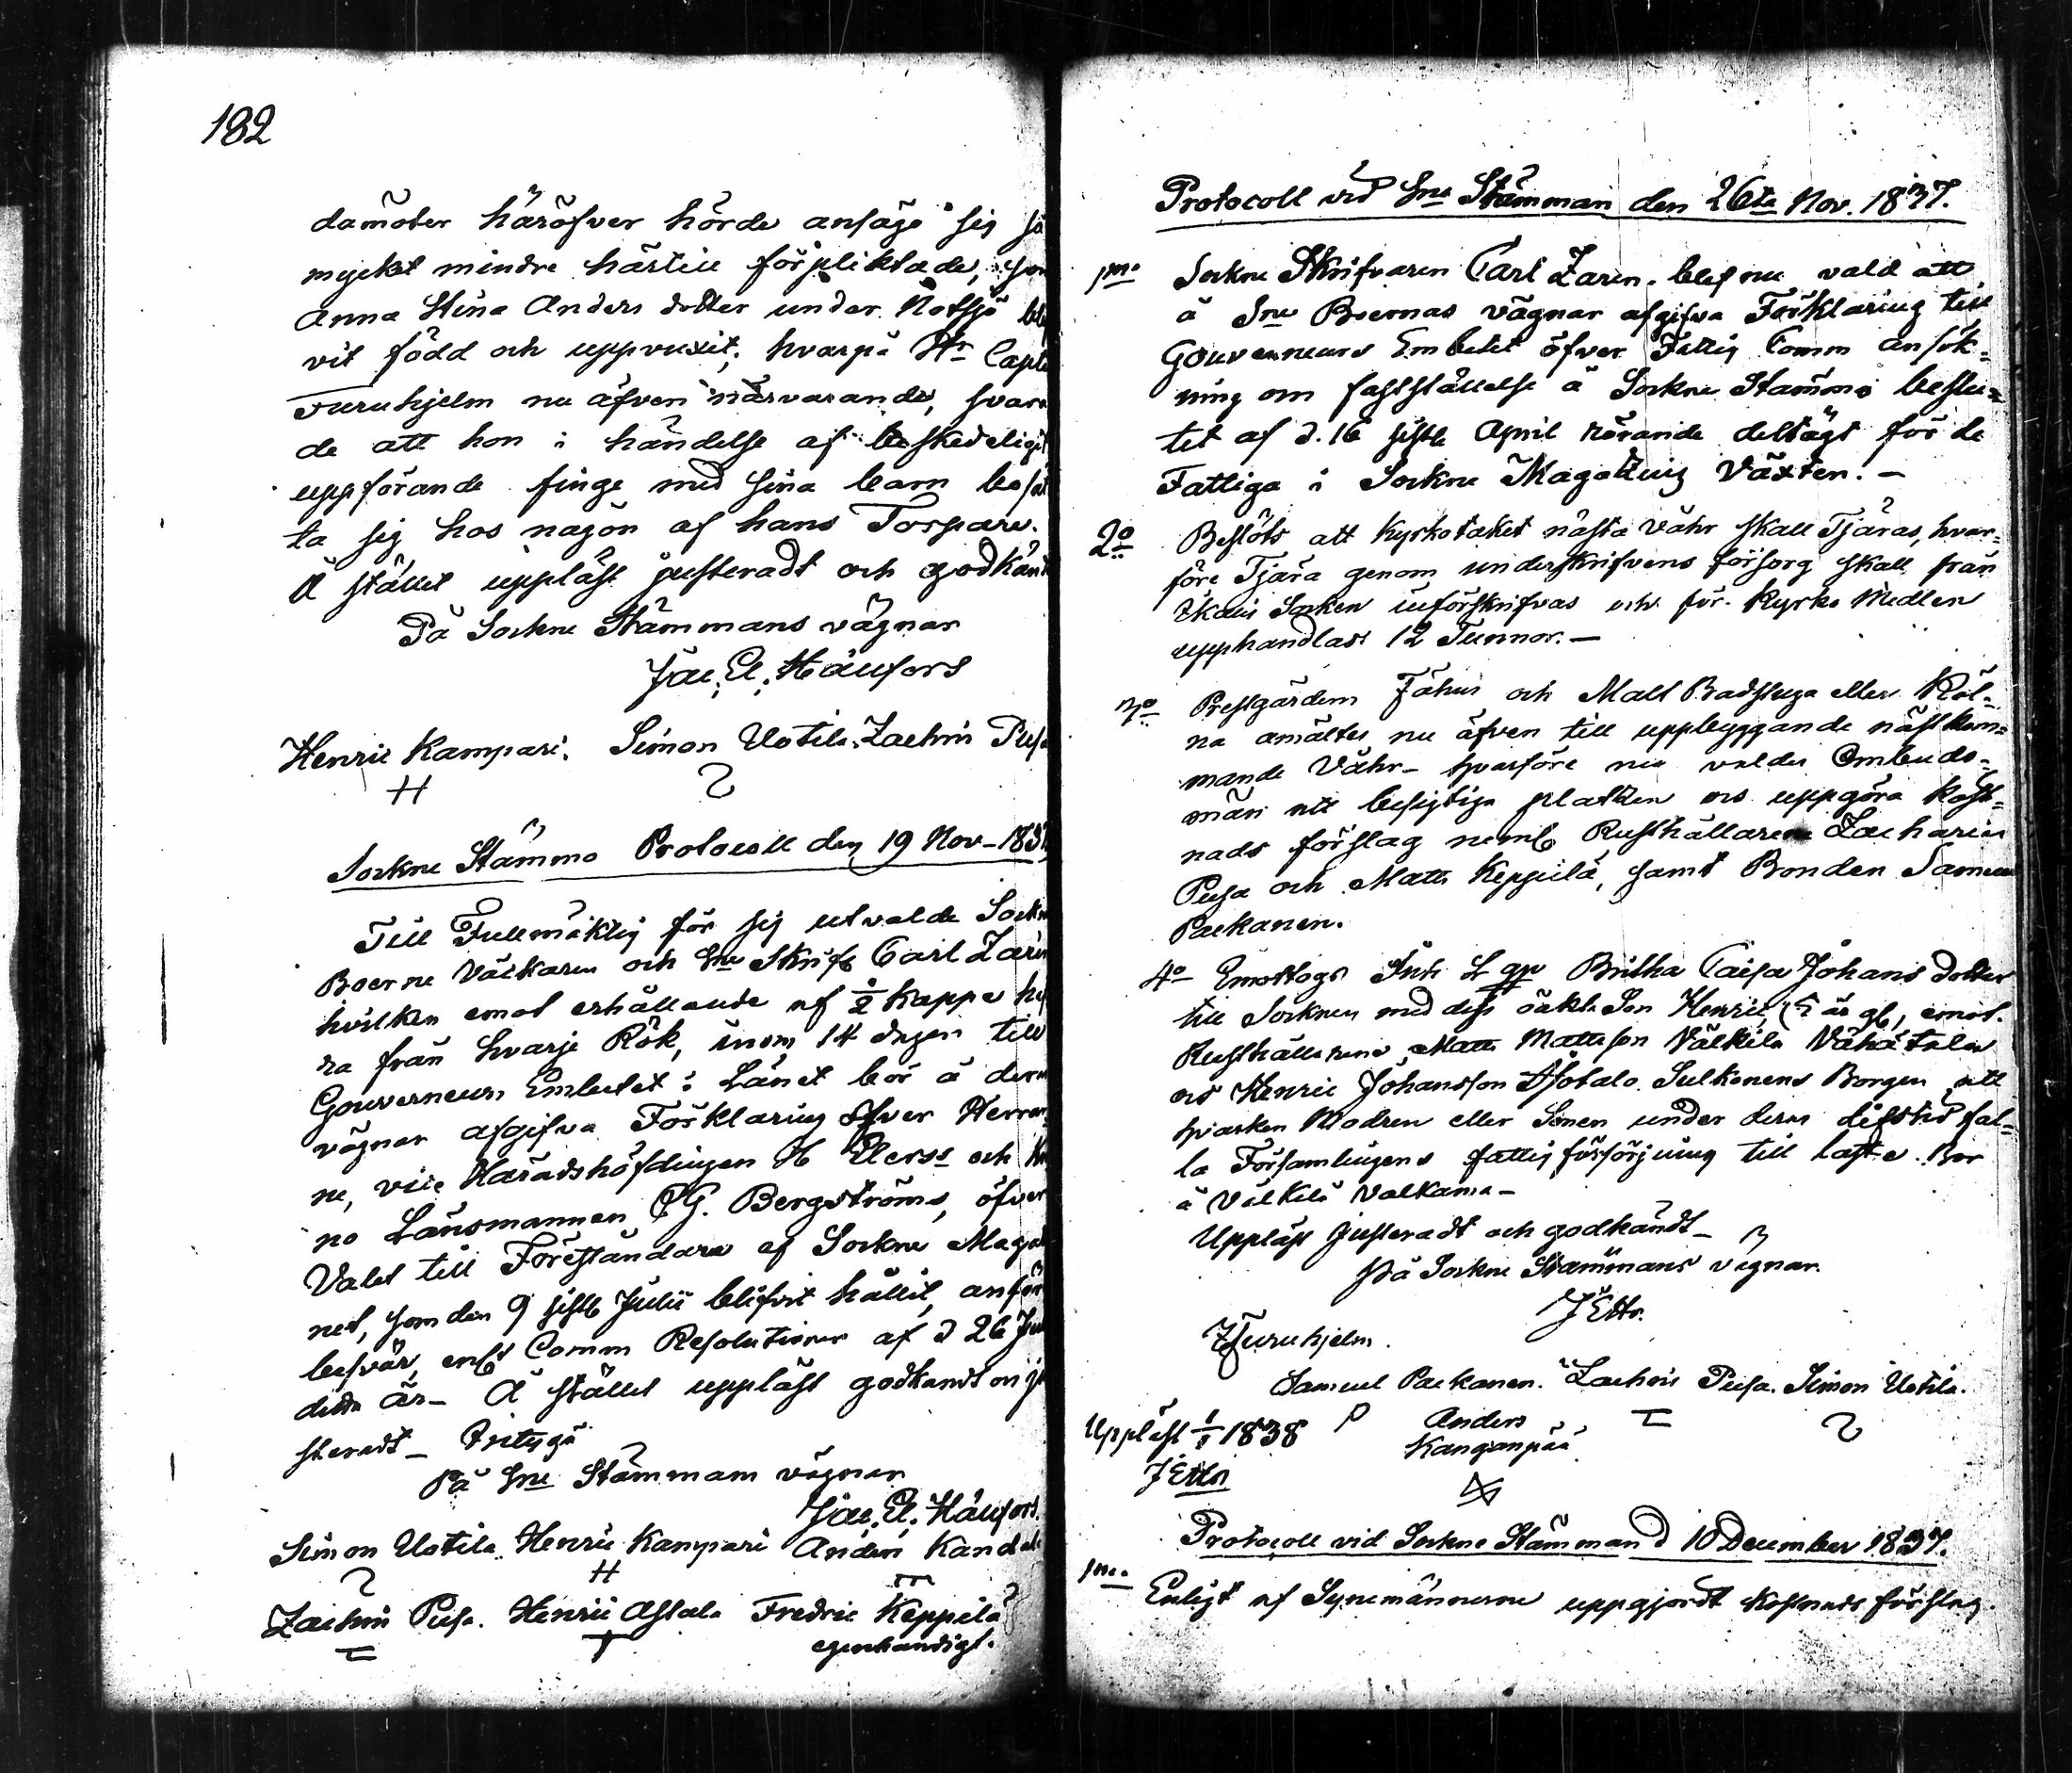 182
damöter häröfver hörde ansåge sig så
mycket mindre härtill förpliktade, som
Anna Stina Anders dotter under Notsjö blif
vit född och uppvuxit, hvarpå Hr Capte
Furuhjelm nu äfven närvarande, svara
de att hon i händelse af beskedeligit
uppförande finge med sina barn bosät
ta sig hos någon af hans Torpare.
Å stället uppläst justeradt och godkänt
På Sockne Stämmans vägnar
Jac. El. Häufors
Henric Kampari. Simon Uotila. Zachris Pusa
Sockne Stämmo Protocoll den 19 Nov. 1837
Till Fullmäktig för sig utvalde Sockne
Boerne Väckaren och Sne Skrifv Carl Zarin
hvilken emot erhållande af ½ Kappe
ra från hvarje Rök, inom 14 dagar till
Gouverneurs Embetet i Länet bör å deras
vägnar afgifva Förklaring öfver Herrar
ne, vice Häradshöfdingen H Elers och
no Länsmannen G. Bergströms, öfver
Valet till Föreståndare af Sockne Maga
net, som den 9 sistl Julii blifvit hållit, anför
besvär, enligt Comm Resolutioner af d 26
detta år. Å stället uppläst godkändt och ju
steradt
På Sne Stämmans vägnar
Jac. El. Häufors.
Simon Uotila. Henric Kampari Anders
Zachris Pusa. Henric Astala Fredric Keppilä
egenhändigt.
Protocoll vid Sne Stämman den 26te Nov. 1837.
1mo Sockne Skrifvaren Carl Zarin blef nu vald att
å Sne Boernas vägnar afgifva Förklaring till
Gouverneurs Embetet öfver Fattig Comm ansök=
ning om fastställelse å Sockne Stämmo beslu=
tet af d. 16 sistl April rörande deltagt för de
Fattiga i Sockne Magazins Växten. —
2o Beslöts att Kyrkotaket nästa våhr skall Tjäras, hvar=
före Tjära genom underskrifvens försorg skall från
Ikalis Socken införskrifvas och för Kyrko Medlen
upphandlas 12 Tunnor. —
3o Prestgårdens Fähus och Malt Badstuga eller Köl=
na anmältes nu äfven till uppbyggande nästkom=
mande Våhr – hvarföre nu valdes Ombuds=
män att besigtiga platsen och uppgöra kost=
nads förslag neml Rusthållarene Zacharias
Pusa och Matts Keppilä, samt Bonden Samuel
Packanen.
4o Emottogs Britha Caisa Johans dotter
till Socknen med dess oäkta Son Henric 5 år gl, emot
Rusthållarene Matts Mattsson Välkilä Vähätalo
och Henric Johansson Borgen att
hvarken Modren eller Sonen under deras lifstid fal=
la Församlingens fattigförsörjning till last. Bor
å Välkilä Valkama –
Uppläst Justeradt och godkändt –
På Sockne Stämmans vägnar.
J Ettr.
Furuhjelm.
Samuel Packanen. Zachris Pusa. Simon Uotila.
Anders
Kanganpää
Uppläst 1/1 1838
J Ettr
Protocoll vid Sockne Stämman d 10 December 1837.
1mo Enligt af Synemännerne uppgjordt kostnads förslag